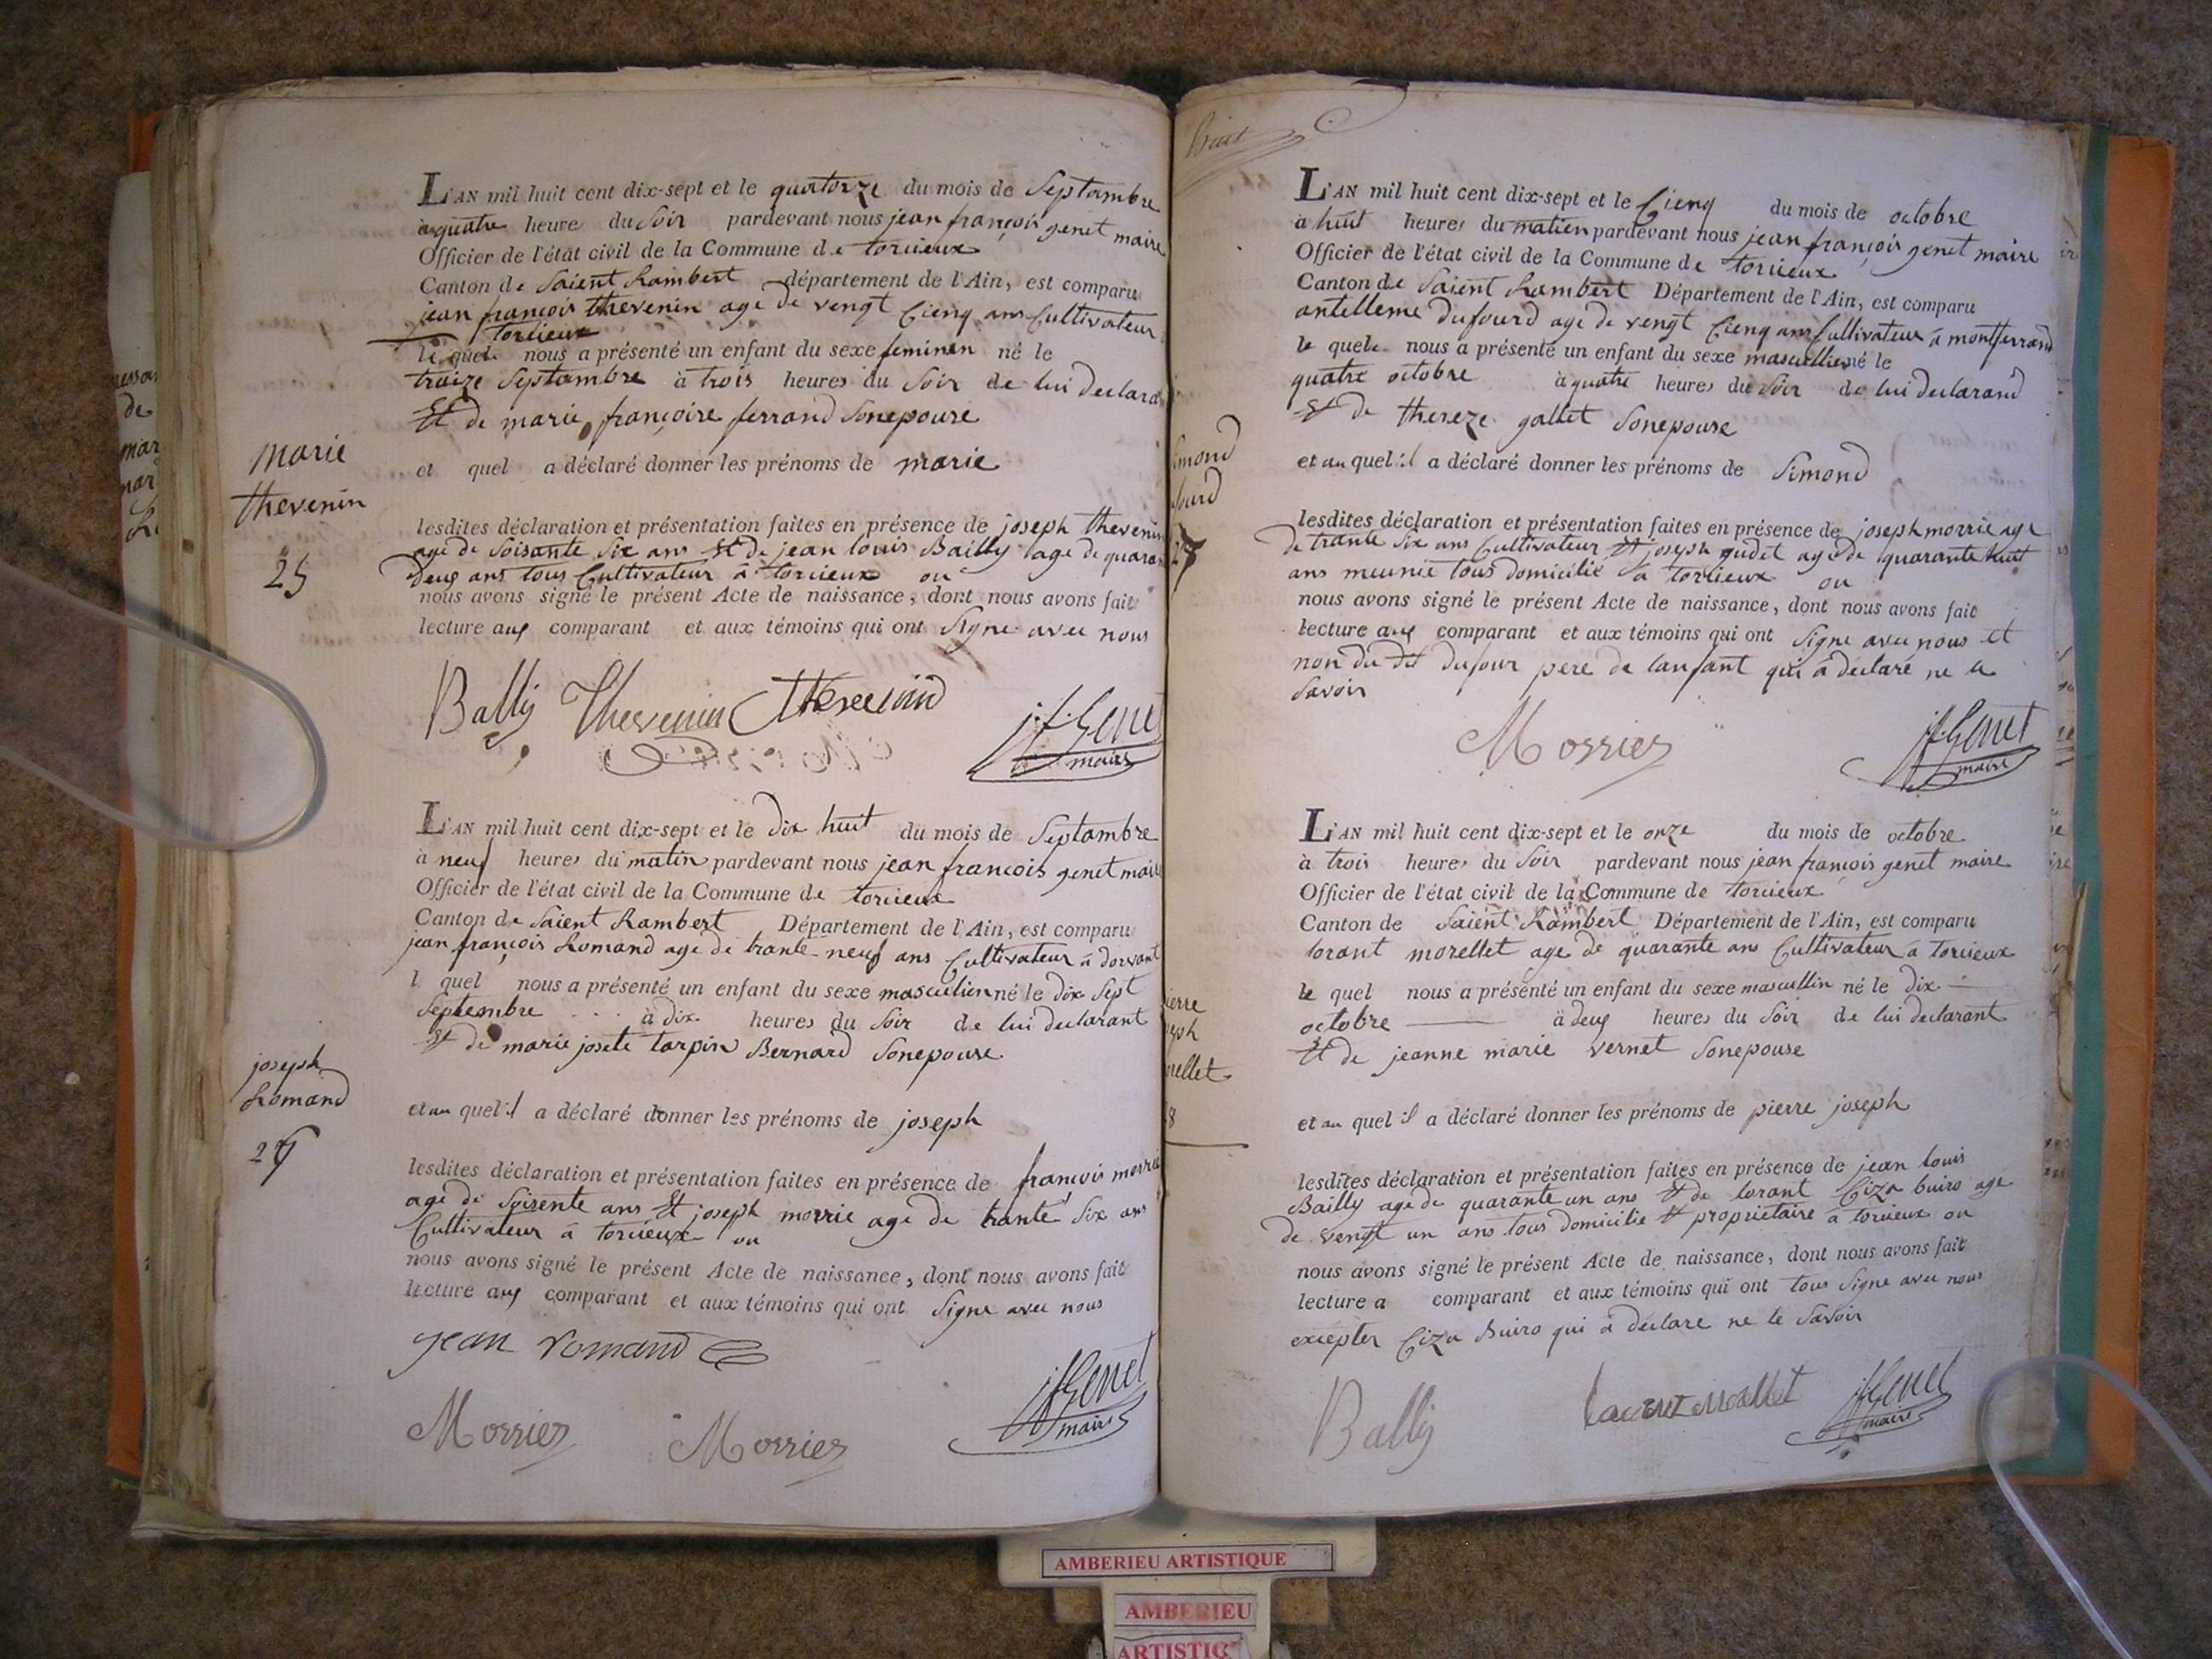 L'AN mil huit cent dix-sept et le quatorze du mois de Septambre
à quatre heures du Soir pardevant nous jean françois genet maire
Officier de l'état civil de la Commune de torcieux
Canton de Saient Rambert département de l'Ain, est comparu
jean françois thevenin age de vengt Cienq ans Cultivateur
torcieux
le quel nous a présenté un enfant du sexe feminen né le
traize Septambre à trois heures du Soir de lui declara
Et de marie françoire ferrand Sonepouse
marie
et quel a déclaré donner les prénoms de marie
thevenin
lesdites déclaration et présentation faites en présence de joseph thevenin
age de Soisante Six ans Et de jean louis Bailly age de quaran
25
deux ans tous Cultivateur à torcieux ou
nous avons signé le présent Acte de naissance, dont nous avons fait
lecture aux comparant et aux témoins qui ont Signe avec nous
Bally Thevenin
j.f. Genet
maire
L'AN mil huit cent dix-sept et le dix huit du mois de Septambre
à neuf heures du matin pardevant nous jean françois genet maire
Officier de l'état civil de la Commune de torcieux
Canton de Saient Rambert Département de l'Ain, est comparu
jean françois Romand age de trante neuf ans Cultivateur à dorvant
l quel nous a présenté un enfant du sexe masculien né le dix Sept
Septembre à dix heures du Soir de lui declarant
Et de marie josete tarpin Bernard Sonepouse
joseph
Romand
et au quel il a déclaré donner les prénoms de joseph
lesdites déclaration et présentation faites en présence de françois morrie
age de Soisente ans Et joseph morrie age de trante Six ans
Cultivateur à torcieux ou
nous avons signé le présent Acte de naissance, dont nous avons fait
lecture aux comparant et aux témoins qui ont Signe avec nous
jean romand
Morrier Morrier
jf Genet
maire
L'AN mil huit cent dix-sept et le Cienq du mois de octobre
à huit heures du matien pardevant nous jean françois genet maire
Officier de l'état civil de la Commune de torcieux
Canton de Saient Rambert Département de l'Ain, est comparu
antelleme dufourd age de vengt Cienq ans Cultivateur à montferrand
le quel nous a présenté un enfant du sexe mascullien né le
quatre octobre à quatre heures du Soir de lui declarand
Et de thereze gallet Sonepouse
imond
et au quel il a déclaré donner les prénoms de Simond
fourd
lesdites déclaration et présentation faites en présence de joseph morrie age
de trante Six ans Cultivateur Et joseph gudet age de quarante huit
ans meunie tous domicilie a torcieux ou
nous avons signé le présent Acte de naissance, dont nous avons fait
lecture aux comparant et aux témoins qui ont Signe avec nous et
non du dit dufour pere de lanfant qui à déclaré ne le
Savoir
Morrier
jf Genet
maire
L'AN mil huit cent dix-sept et le onze du mois de octobre
à trois heures du Soir pardevant nous jean françois genet maire
Officier de l'état civil de la Commune de torcieux
Canton de Saient Rambert Département de l'Ain, est comparu
lorant morellet age de quarante ans Cultivateur a torcieux
le quel nous a présenté un enfant du sexe mascullin né le dix
octobre à deux heures du Soir de lui declarant
Et de jeanne marie vernet Sonepouse
ierre
seph
rellet
8
et au quel il a déclaré donner les prénoms de pierre joseph
lesdites déclaration et présentation faites en présence de jean louis
Bailly age de quarante un ans Et de lorant Ciza buiro age
de vengt un ans tous domicilie Et proprietaire à torcieux ou
nous avons signé le présent Acte de naissance, dont nous avons fait
lecture a comparant et aux témoins qui ont tous Signe avec nous
excepter Ciza Buiro qui à déclare ne le Savoir
Bally
jf Genet
maire
AMBERIEU ARTISTIQUE
AMBERIEU
ARTISTIQ